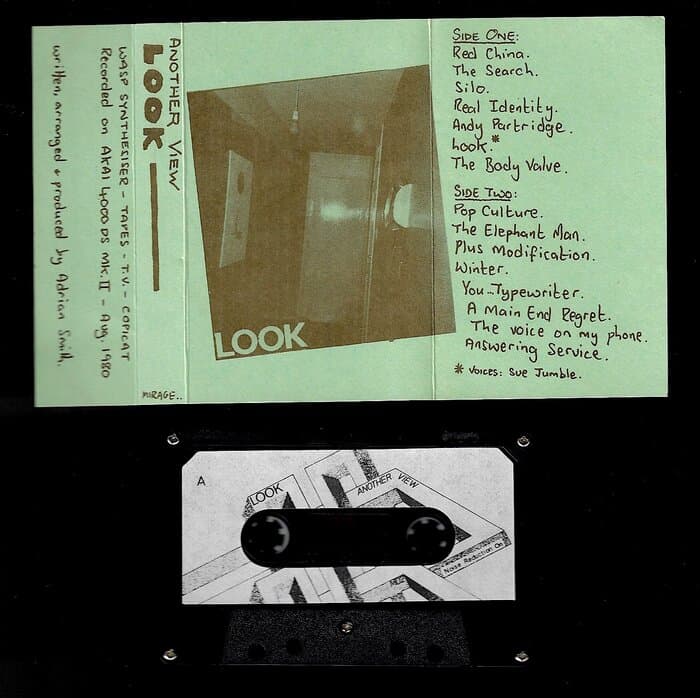 written, arranged & produced by Adrian Smith.
WASP SYNTHESISER - TAPES - T.V. - COPICAT
Recorded on AKAI 4000 DS MK.II - Aug. 1980
ANOTHER VIEW
LOOK
MIRAGE..
LOOK
SIDE ONE:
Red China.
The Search.
Silo.
Real Identity.
Andy Partridge.
Look.*
The Body Valve.
SIDE TWO:
Pop Culture.
The Elephant Man.
Plus Modification.
Winter.
You...Typewriter.
A Main End Regret.
The voice on my phone.
Answering Service.
* Voices: Sue Jumble.
A
LOOK
ANOTHER VIEW
Noise Reduction On